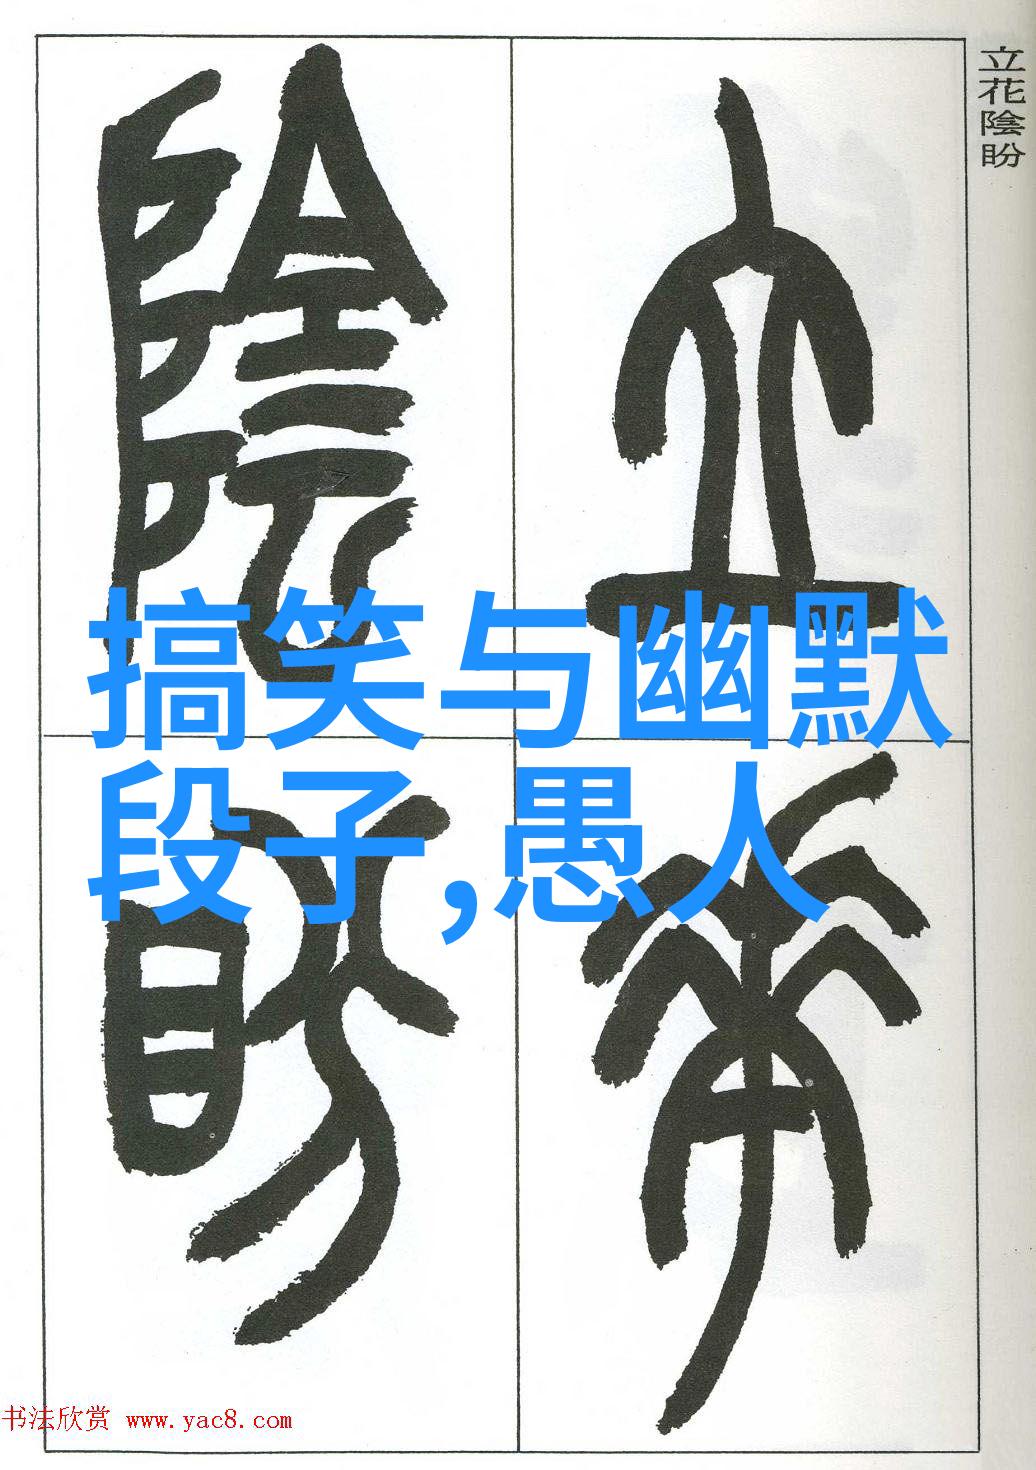 立花陰盼
立
花
陰
盼
搞笑与幽默
段子,愚人
书法欣赏 www.yac8.com